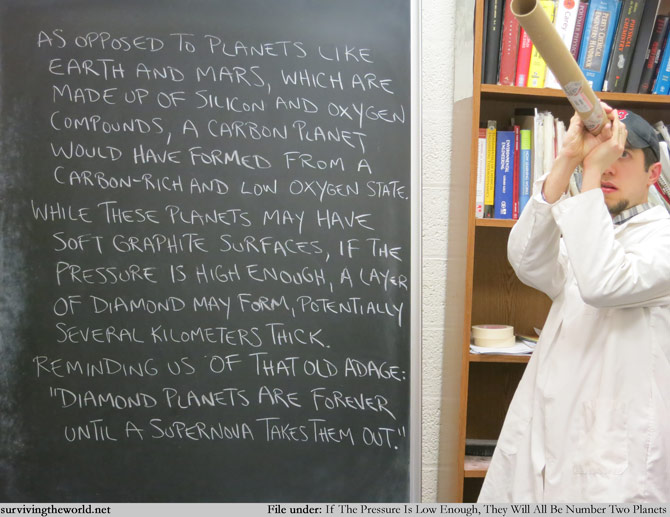 AS OPPOSED TO PLANETS LIKE
EARTH AND MARS, WHICH ARE
MADE UP OF SILICON AND OXYGEN
COMPOUNDS, A CARBON PLANET
WOULD HAVE FORMED FROM A
CARBON-RICH AND LOW OXYGEN STATE.
WHILE THESE PLANETS MAY HAVE
SOFT GRAPHITE SURFACES, IF THE
PRESSURE IS HIGH ENOUGH, A LAYER
OF DIAMOND MAY FORM, POTENTIALLY
SEVERAL KILOMETERS THICK.
REMINDING US OF THAT OLD ADAGE:
"DIAMOND PLANETS ARE FOREVER
UNTIL A SUPERNOVA TAKES THEM OUT."
survivingtheworld.net
File under: If The Pressure Is Low Enough, They Will All Be Number Two Planets